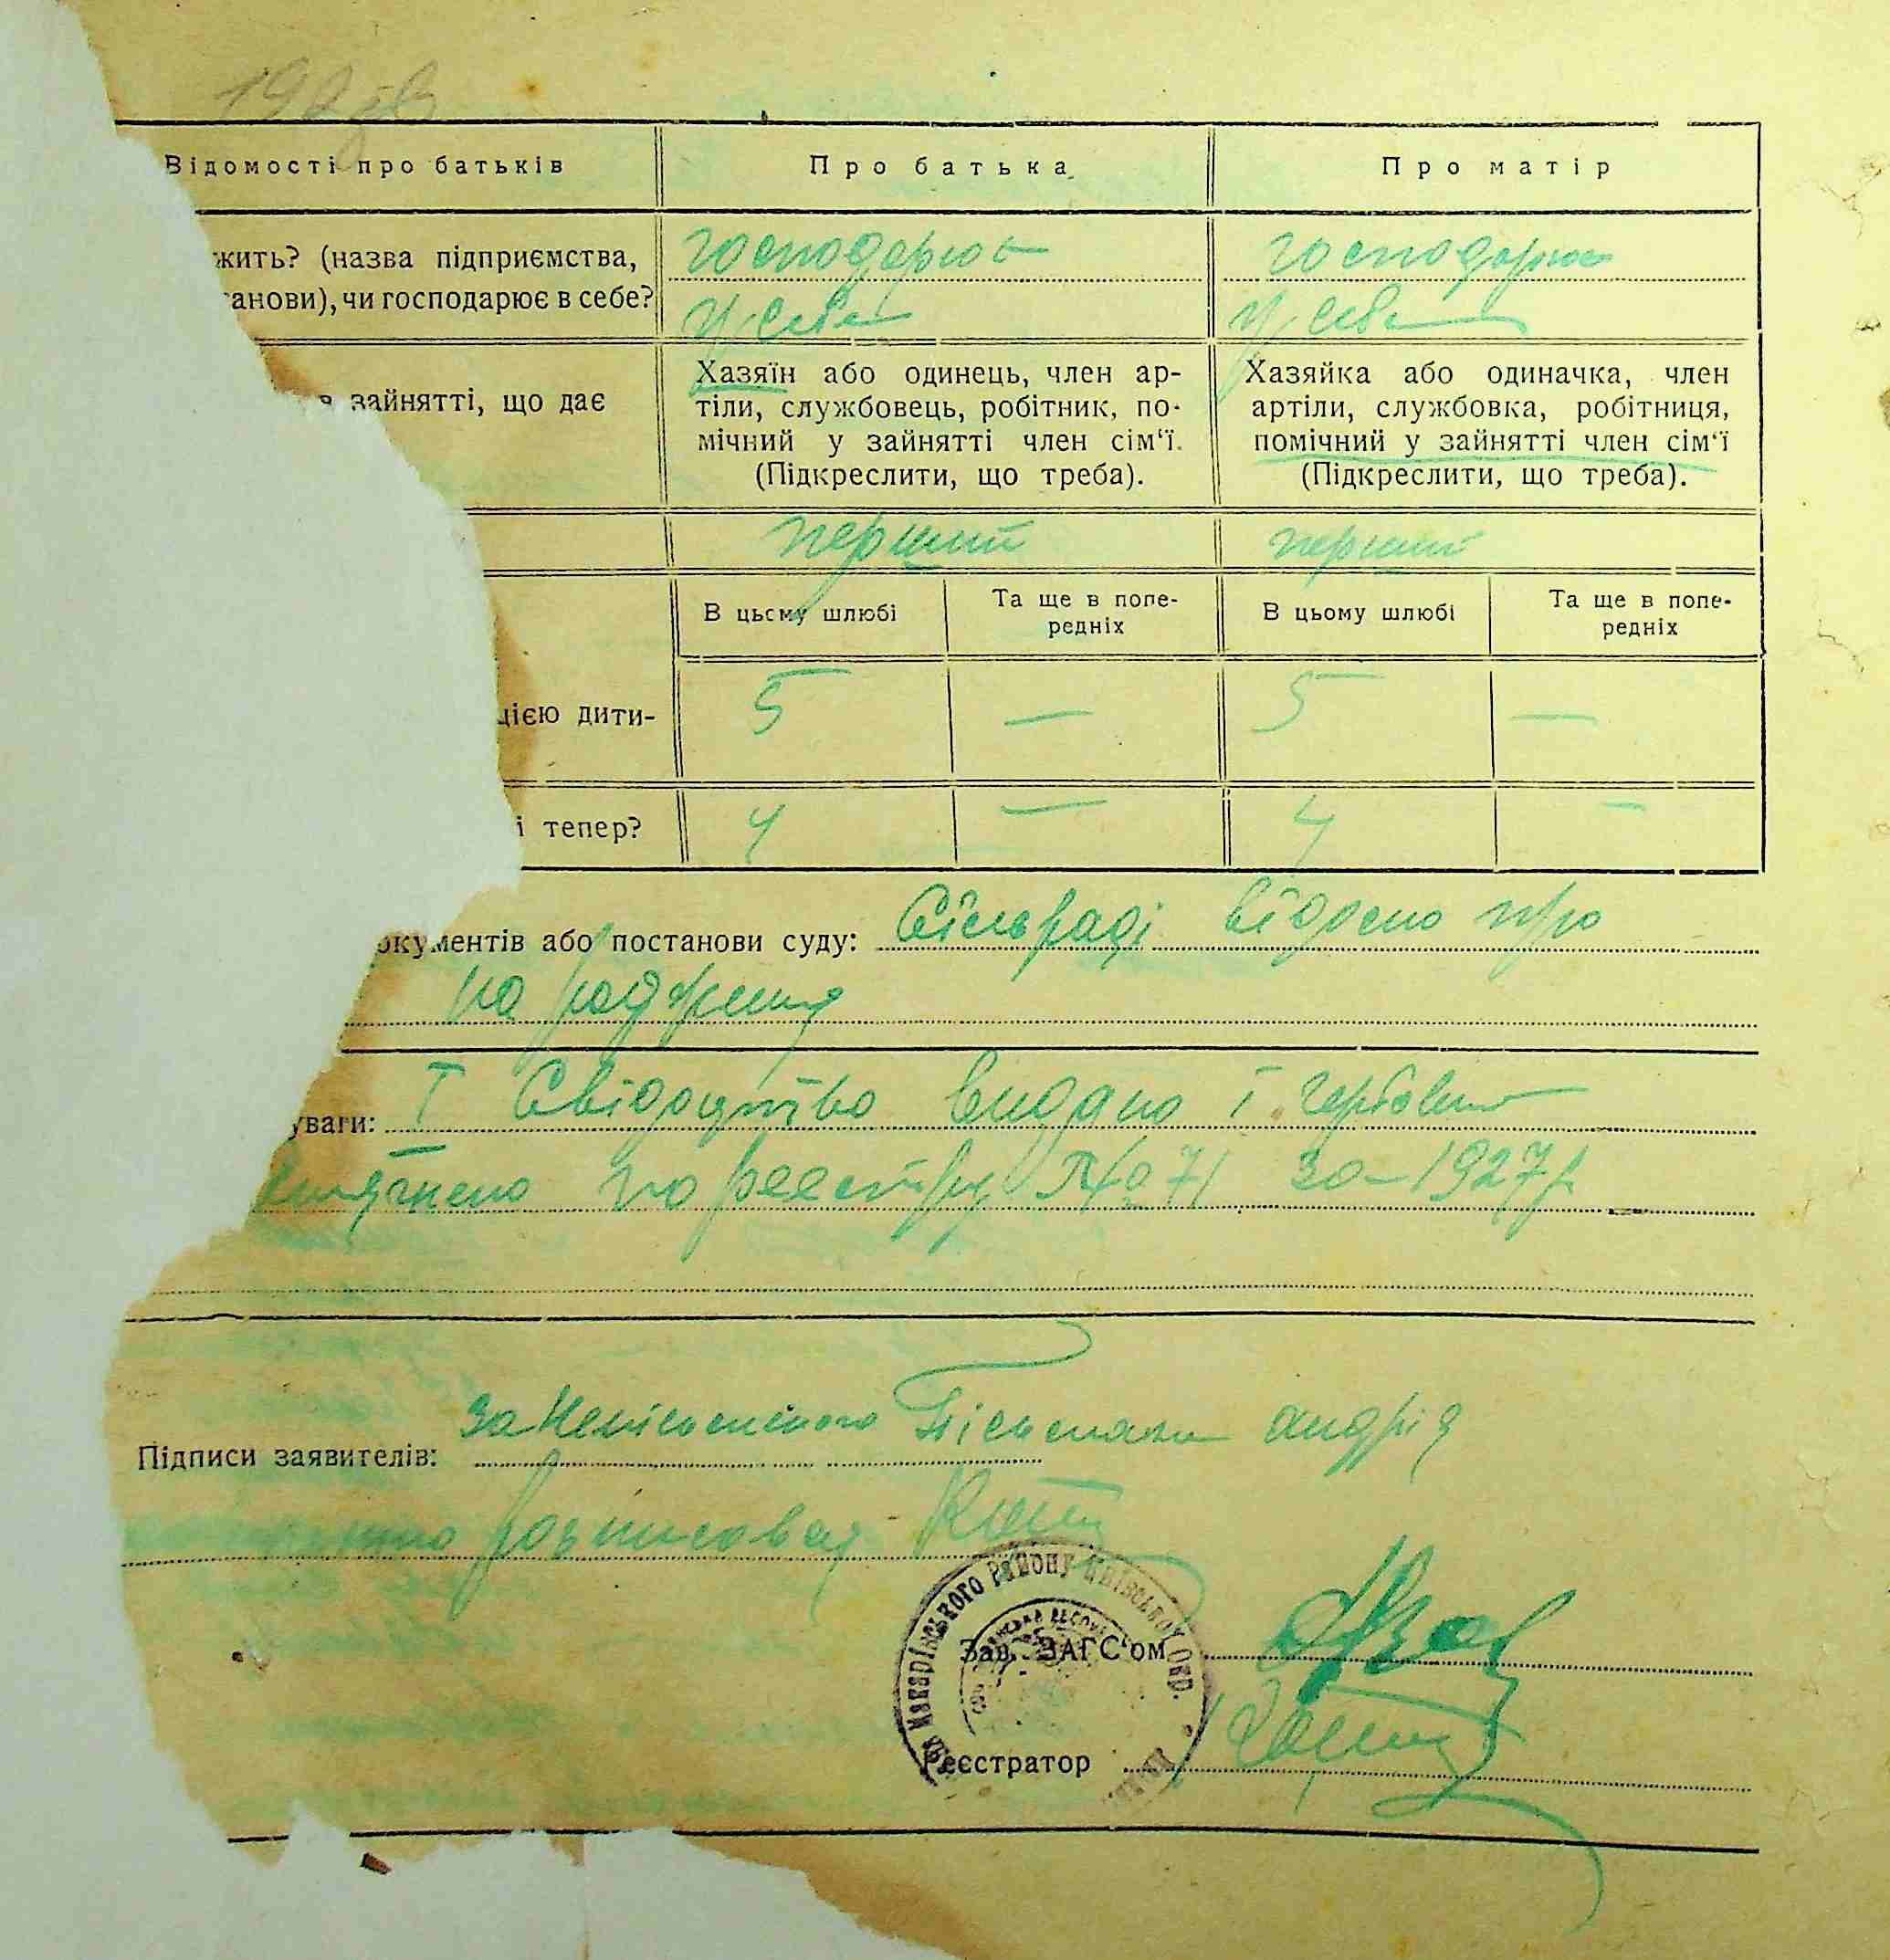 Відомості про батьків Про батька Про матір
жить? (назва підприємства, господарює господарює
анови), чи господарює в себе? у себе у себе
зайнятті, що дає
Хазяїн або одинець, член ар-
тіли, службовець, робітник, по-
мічний у зайнятті член сім'ї.
(Підкреслити, що треба).
Хазяйка або одиначка, член
артіли, службовка, робітниця,
помічний у зайнятті член сім'ї
(Підкреслити, що треба).
перший перший
В цьому шлюбі Та ще в попе-
редніх
В цьому шлюбі Та ще в попе-
редніх
цією дити- 5 — 5 —
і тепер? 4 — 4 —
окументів або постанови суду: Сільраді відомо про
уваги: Свідоцтво видано
по реестру № 71 за 1927 р
за Неписьменного андрія
Підписи заявителів:
розписовая
Макарівського району Київської Окр.
Зав. ЗАГС'ом
Реєстратор